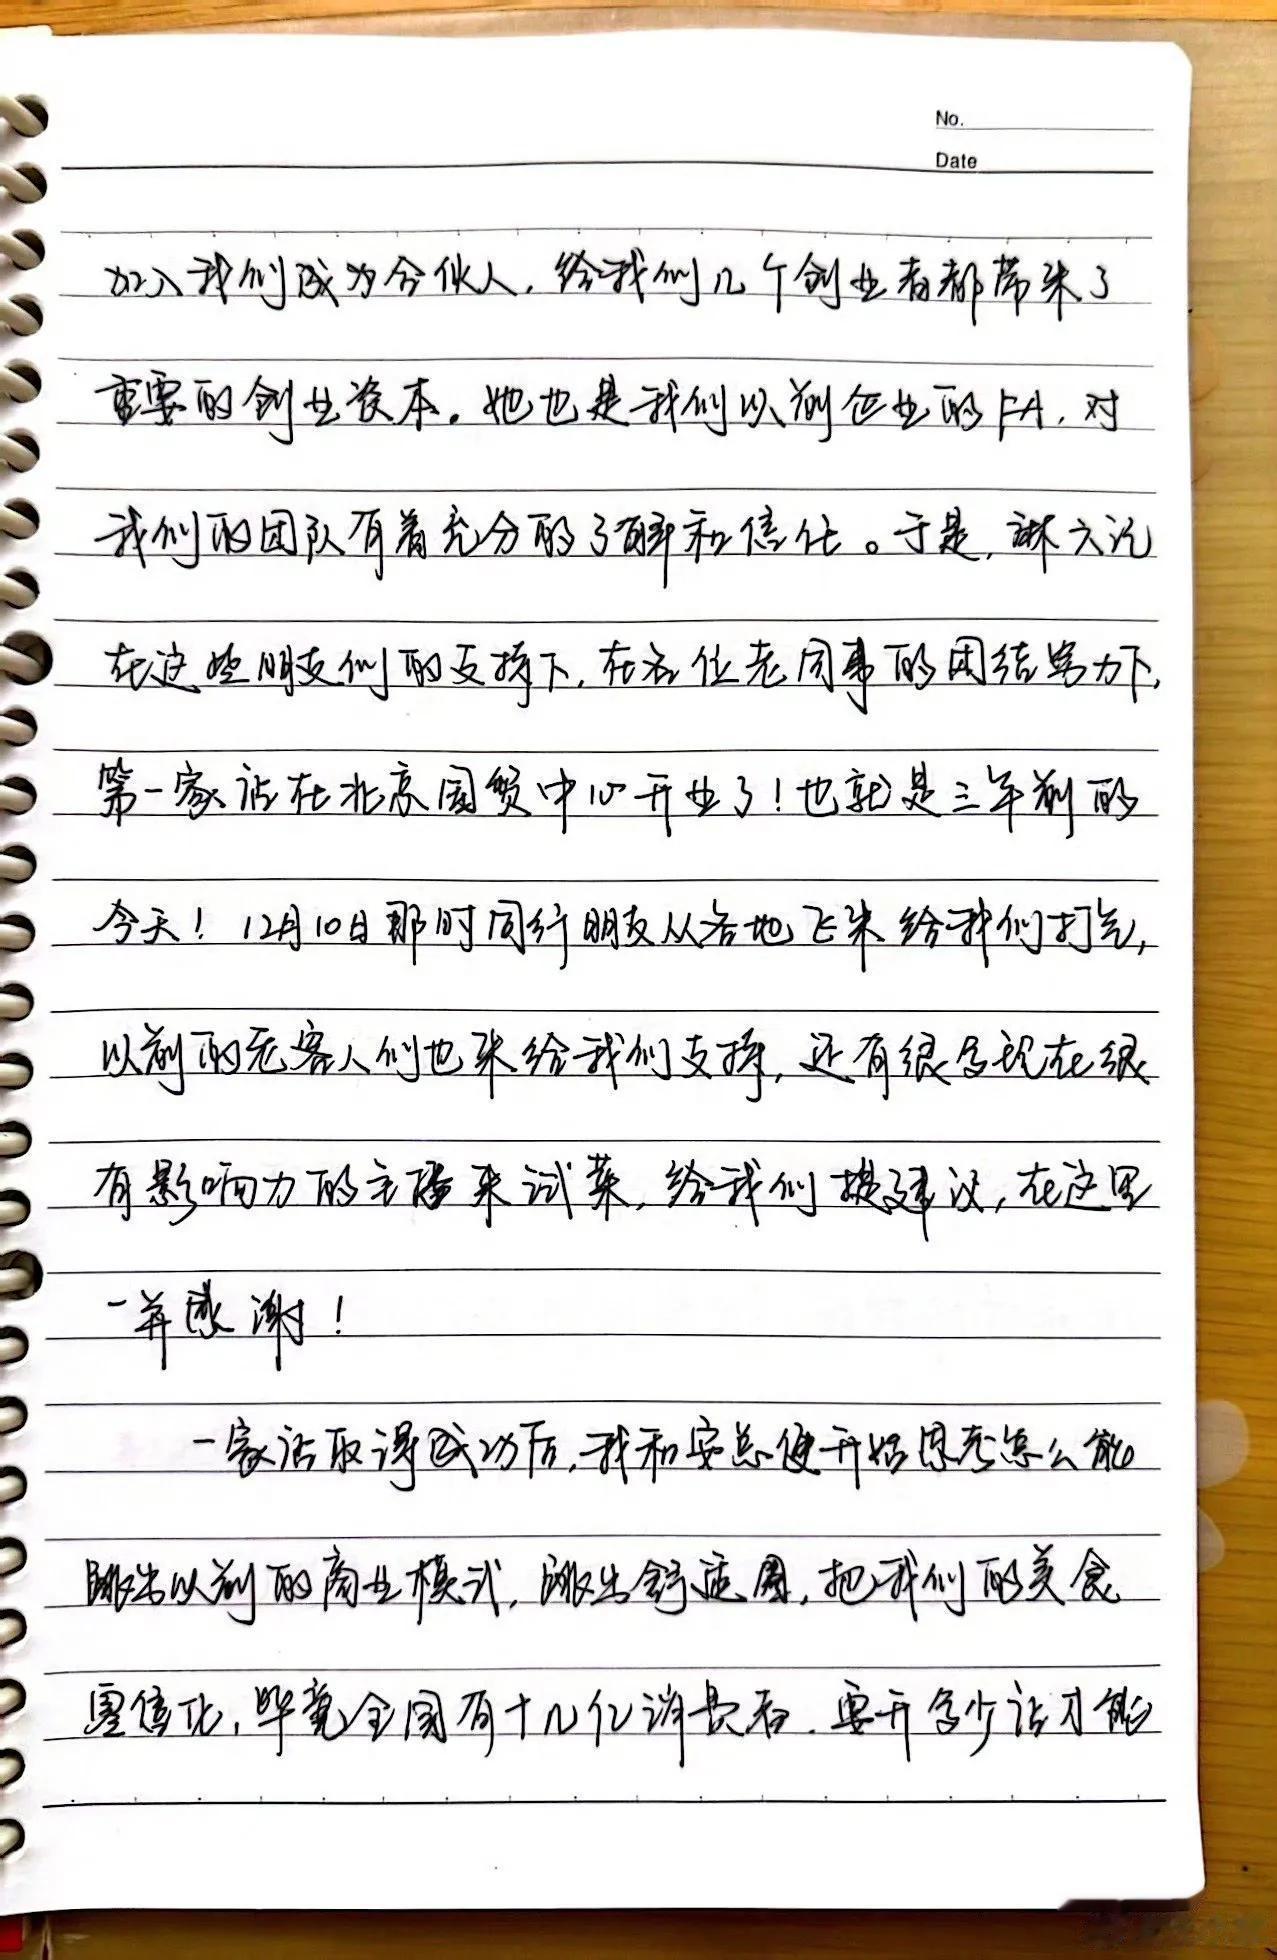 No.
Date
加入我们成为合伙人，给我们几个创业者都带来了
重要的创业资本。她也是我们以前企业的FA，对
我们的团队有着充分的了解和信任。于是，麻六记
在这些朋友们的支持下，在各位老同事的团结努力下，
第一家店在北京国贸中心开业了！也就是三年前的
今天！12月10日那时同行朋友从各地飞来给我们打气，
以前的老客人们也来给我们支持，还有很多现在很
有影响力的主播来试菜，给我们提建议，在这里
一并感谢！
一家店取得成功后，我和安总便开始思考怎么能
跳出以前的商业模式，跳出舒适圈，把我们的美食
零售化，毕竟全国有十几亿消费者，要开多少店才能